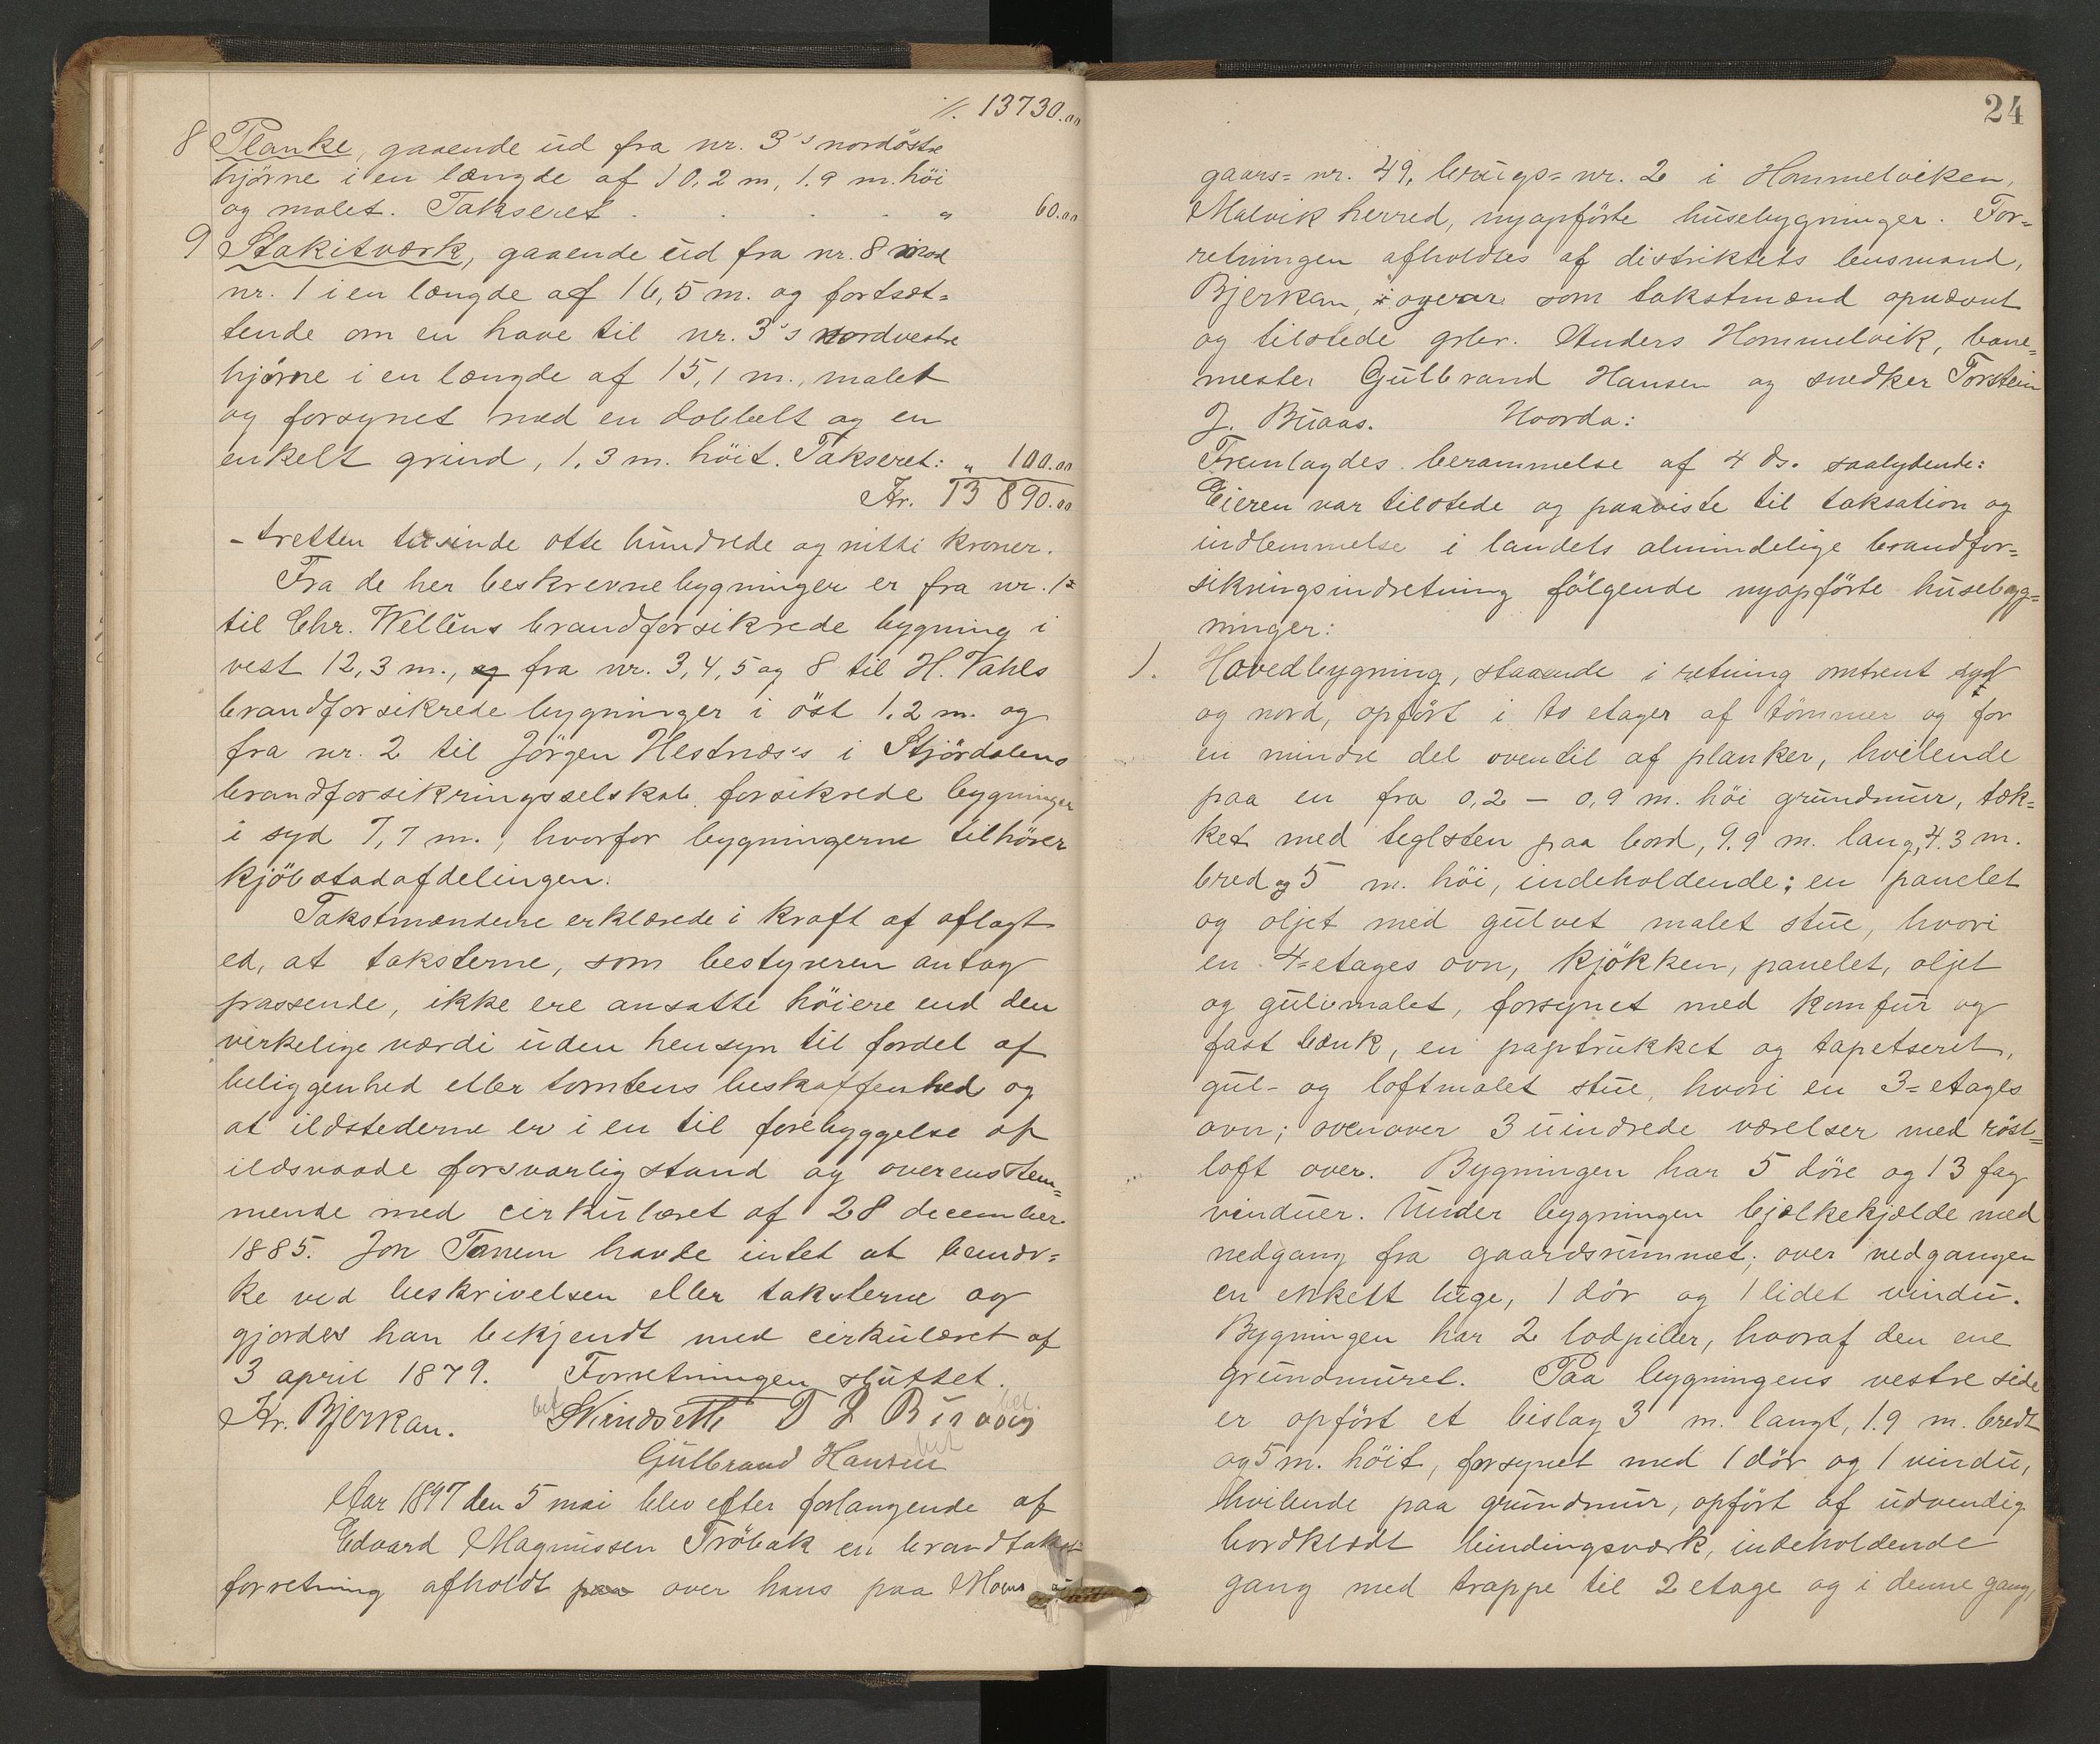 ./. 13730.00
8 Planke, gaaende ud fra nr. 3's nordöstre
hjörne i en længde af 10,2 m, 1.9 m. höi
og malet. Takseret . . . . „ 60.00
9 Stakitværk, gaaende ud fra nr. 8 mod
nr. 1 i en længde af 16,5 m. og fortsæt=
tende om en have til nr. 3's nordvestre
hjörne i en længde af 15,1 m., malet
og forsynet med en dobbelt og en
enkelt grind, 1.3 m. höit. Takseret: „ 100.00
Kr. 13 890.00
- tretten tusinde otte hundrede og nitti kroner.
Fra de her beskrevne bygninger er fra nr. 1
til Chr. Welléns brandforsikrede bygning i
vest 12,3 m., og fra nr. 3, 4, 5 og 8 til H. Vahls
brandforsikrede bygninger i öst 1.2 m. og
fra nr. 2 til Jörgen Hestnæs's i Stjördalens
brandforsikringsselskab forsikrede bygninger
i syd 7,7 m., hvorfor bygningerne tilhörer
kjöbstadafdelingen.
Takstmændene erklærede i kraft af aflagt
ed, at taksterne, som bestyreren antog
passende, ikke ere ansatte höiere end den
virkelige værdi uden hensyn til fordel af
beliggenhed eller tomtens beskaffenhed og
at ildstederne er i en til forebyggelse af
ildsvaade forsvarlig stand og overensstem=
mende med cirkulæret af 28 december
1885. Jon Tanem havde intet at bemær=
ke ved beskrivelsen eller taksterne og
gjordes han bekjendt med cirkulæret af
3 april 1879. Forretningen sluttet.
Kr. Bjerkan. bet SWindseth T J Buaas bet.
Gulbrand Hansen bet
Aar 1897 den 5 mai blev efter forlangende af
Edvard Magnussen Tröbak en brandtakst=
forretning afholdt paa over hans paa Moen
24
gaars= nr. 49, brugs= nr. 2 i Hommelviken,
Malvik herred, nyopförte husebygninger. For=
retningen afholdtes af distriktets lensmand,
Bjerkan, og var som takstmænd opnævnt
og tilstede gbr. Anders Hommelvik, bane=
mester Gulbrand Hansen og snedker Torstein
J. Buaas. Hvorda:
Fremlagdes berammelse af 4 ds. saalydende:
Eieren var tilstede og paaviste til taksation og
indlemmelse i landets almindelige brandfor=
sikringsindretning fölgende nyopförte husebyg=
ninger:
1. Hovedbygning, staaende i retning omtrent syd
og nord, opfört i to etager af tömmer og for
en mindre del oventil af planker, hvilende
paa en fra 0,2 – 0,9 m. höi grundmur, tæk=
ket med teglsten paa bord, 9.9 m. lang, 4.3 m.
bred og 5 m. höi, indeholdende: en panelet
og oljet med gulvet malet stue, hvori
en 4=etages ovn, kjökken, panelet, oljet
og gulvmalet, forsynet med komfur og
fast bænk, en paptrukket og tapetseret,
gul- og loftmalet stue, hvori en 3=etages
ovn; ovenover 3 uindrede værelser med röst=
loft over. Bygningen har 5 döre og 13 fag
vinduer. Under bygningen bjelkekjelde med
nedgang fra gaardsrummet; over nedgangen
en enkelt luge, 1 dör og 1 lidet vindu.
Bygningen har 2 lodpiber, hvoraf den ene
grundmuret. Paa bygningens vestre side
er opfört et bislag 3 m. langt, 1.9 m. bredt
og 5 m. höit, forsynet med 1 dör og 1 vindu,
hvilende paa grundmur, opfört af udvendig
bordklædt bindingsværk, indeholdende
gang med trappe til 2 etage og i denne gang,